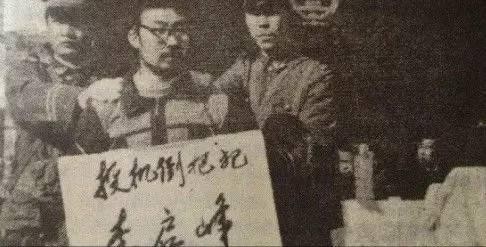 投机倒把犯
李启峰